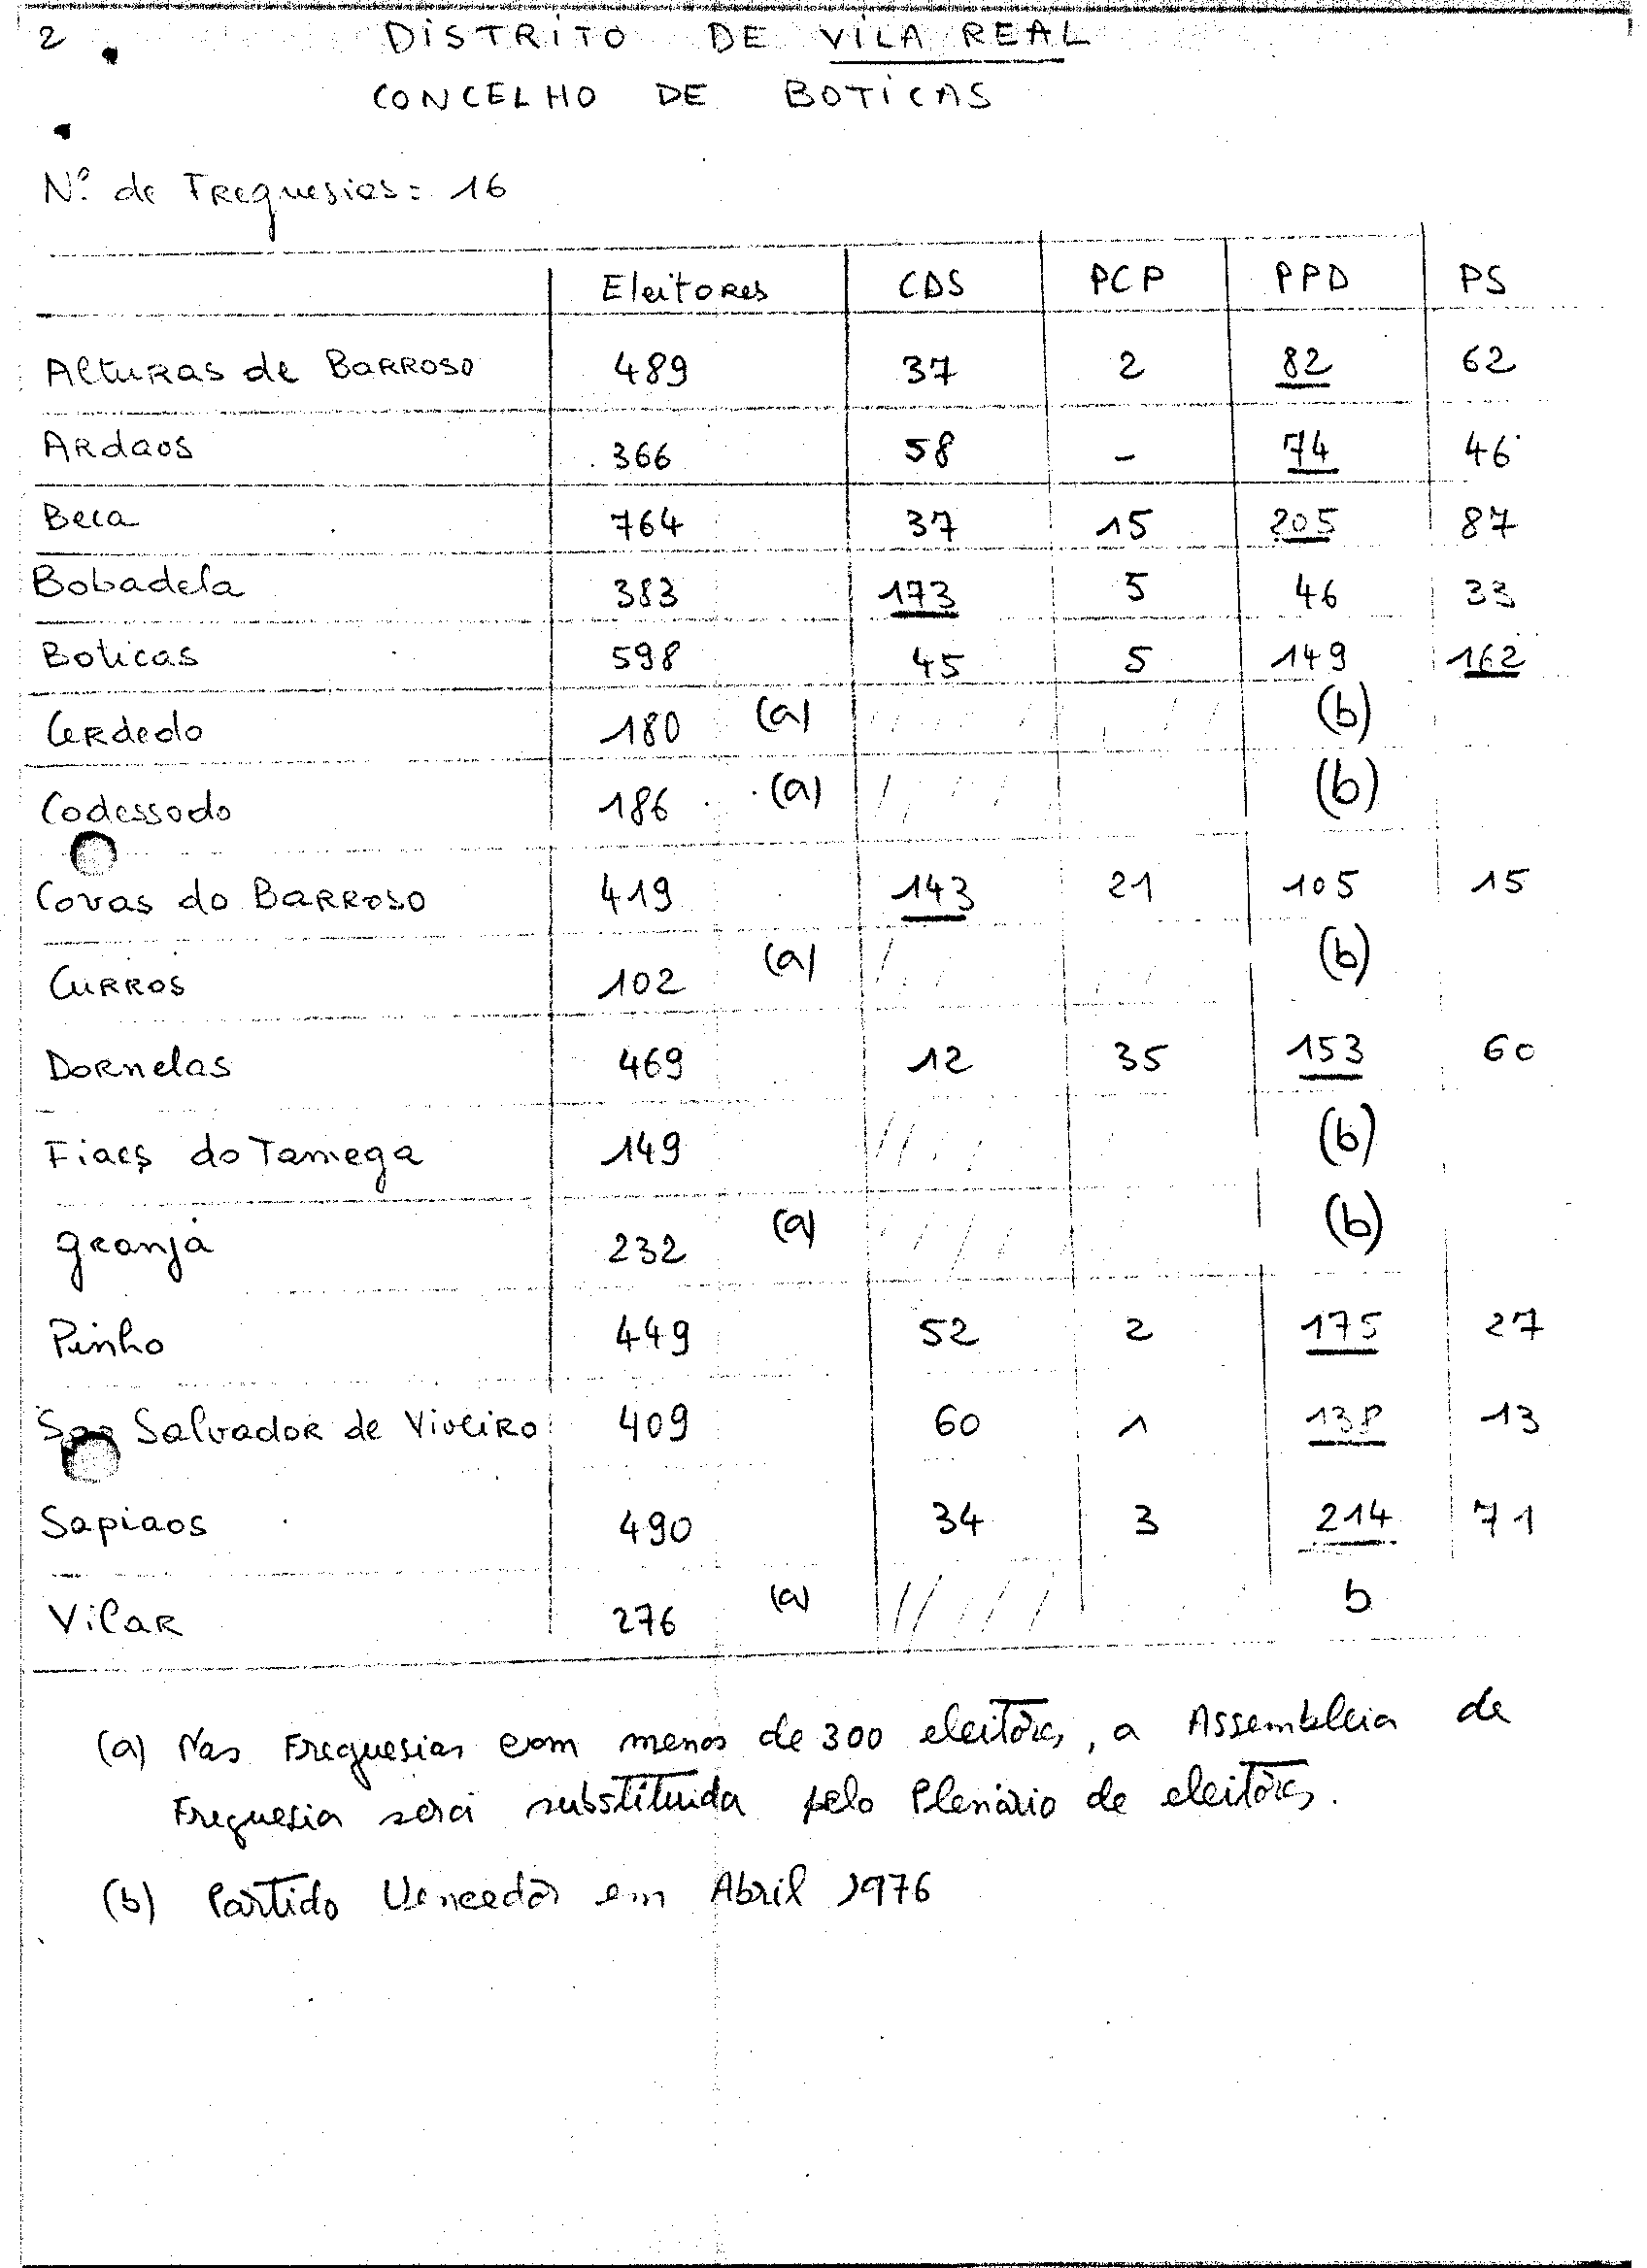 2
DISTRITO DE VILA REAL
CONCELHO DE BOTICAS
Nº de Freguesias: 16
Eleitores CDS PCP PPD PS
Alturas de Barroso 489 37 2 82 62
Ardaos 366 58 - 74 46
Beca 764 37 15 205 87
Bobadela 383 173 5 46 33
Boticas 598 45 5 149 162
Cerdedo 180 (a) (b)
Codessodo 186 (a) (b)
Covas do Barroso 419 143 21 105 15
Curros 102 (a) (b)
Dornelas 469 12 35 153 60
Fiaes do Tamega 149 (b)
Granja 232 (a) (b)
Pinho 449 52 2 175 27
Sao Salvador de Viveiro 409 60 1 138 13
Sapiaos 490 34 3 214 71
Vilar 276 (a) b
(a) Nas Freguesias com menos de 300 eleitores, a Assembleia de
Freguesia será substituida pelo Plenário de eleitores.
(b) Partido Vencedor em Abril 1976